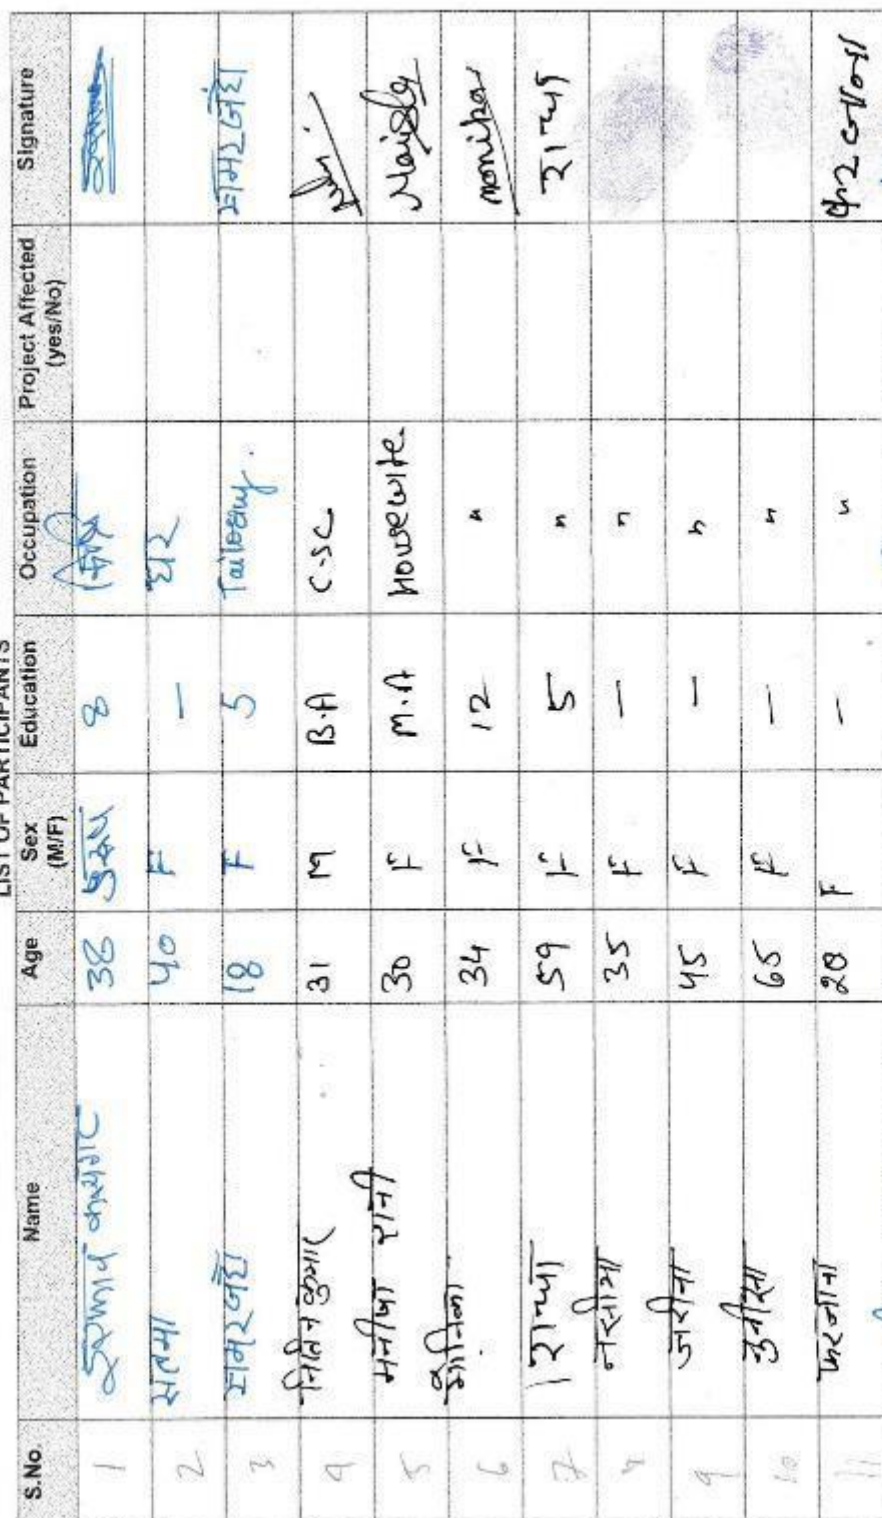 LIST OF PARTICIPANTS
S.No Name Age Sex (M/F) Education Occupation Project Affected (yes/No) Signature
1 38 पुरुष 8
2 सलमा 40 F — घर
3 समरजहाँ 18 F 5 Tailoring. समरजहाँ
4 नितिन कुमार 31 M B.A C.SC
5 मनीषा रानी 30 F M.A Housewife Manisha
6 मोनिका 34 F 12 " monika
7 राज्या 59 F 5 " राज्या
8 35 F — "
9 जरीना 45 F — "
10 65 F — "
11 20 F — "